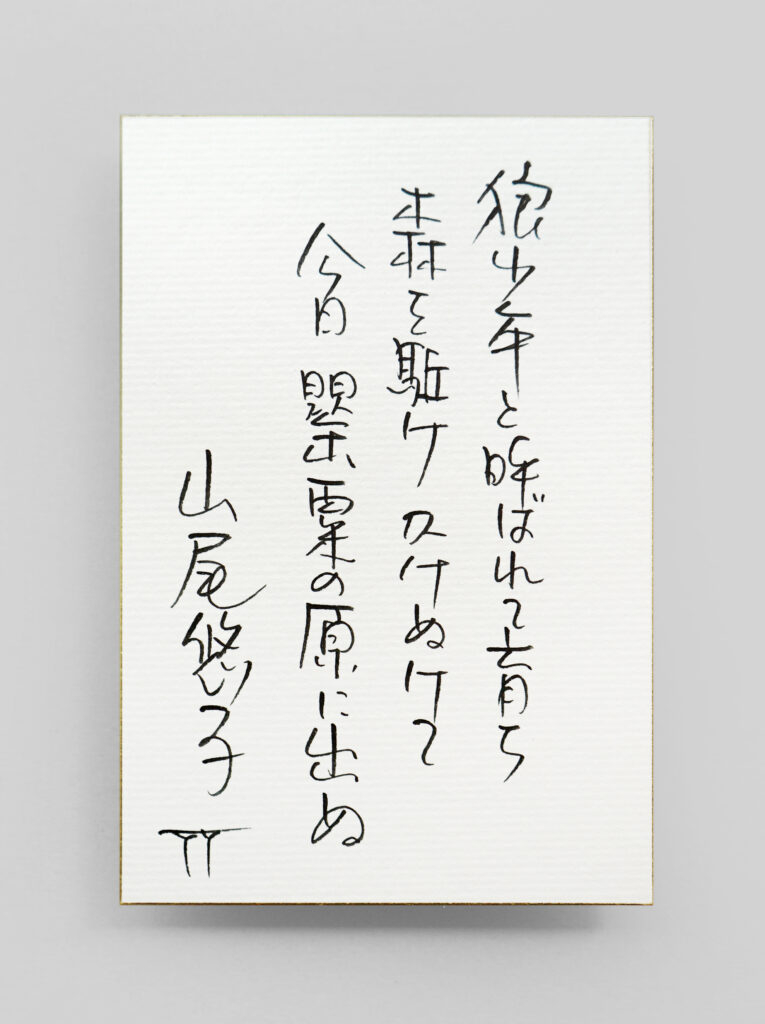 狼少年と呼ばれて育ち
森を駈け かけぬけて
今日 罌粟の原に出ぬ
山尾悠子